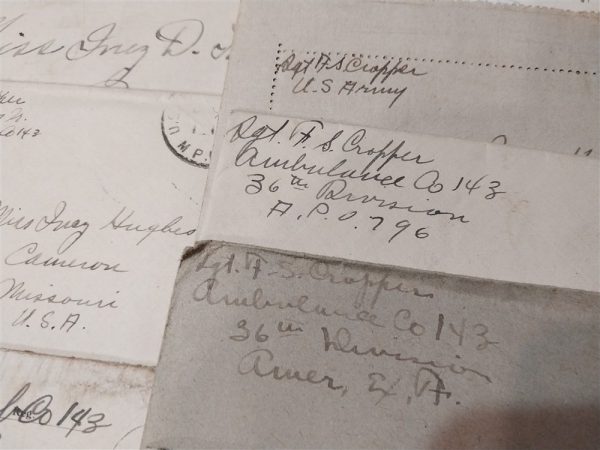 Miss Inez D.
Sgt F S Cropper
U.S Army
Co 143
U.M.P.
Sgt. F. S. Cropper
Ambulance Co 143
36th Division
A.P.O. 796
Miss Inez Hughes
Cameron
Missouri
U.S.A.
Sgt. F. S. Cropper
Ambulance Co 143
36th Division
Amer, Ex, F.
Co 143